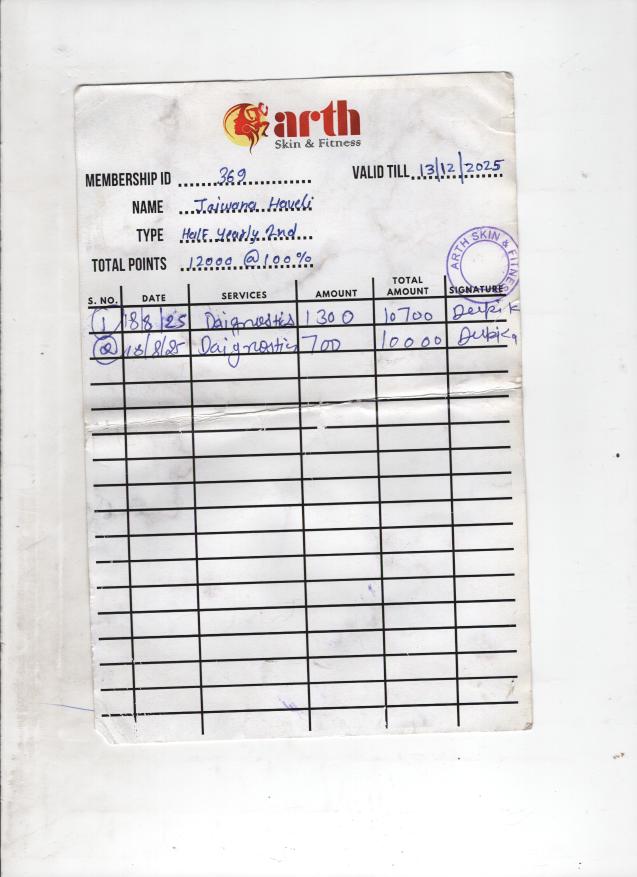 arth
Skin & Fitness
MEMBERSHIP ID 369 VALID TILL 13/12/2025
NAME Jaiwana Haveli
TYPE Half Yearly 2nd
TOTAL POINTS 12000 @ 100%
ARTH SKIN & FITNESS
S. NO. DATE SERVICES AMOUNT TOTAL AMOUNT SIGNATURE
1 18/8/25 Daignostis 1300 10700
2 18/8/25 Daignostic 700 10000